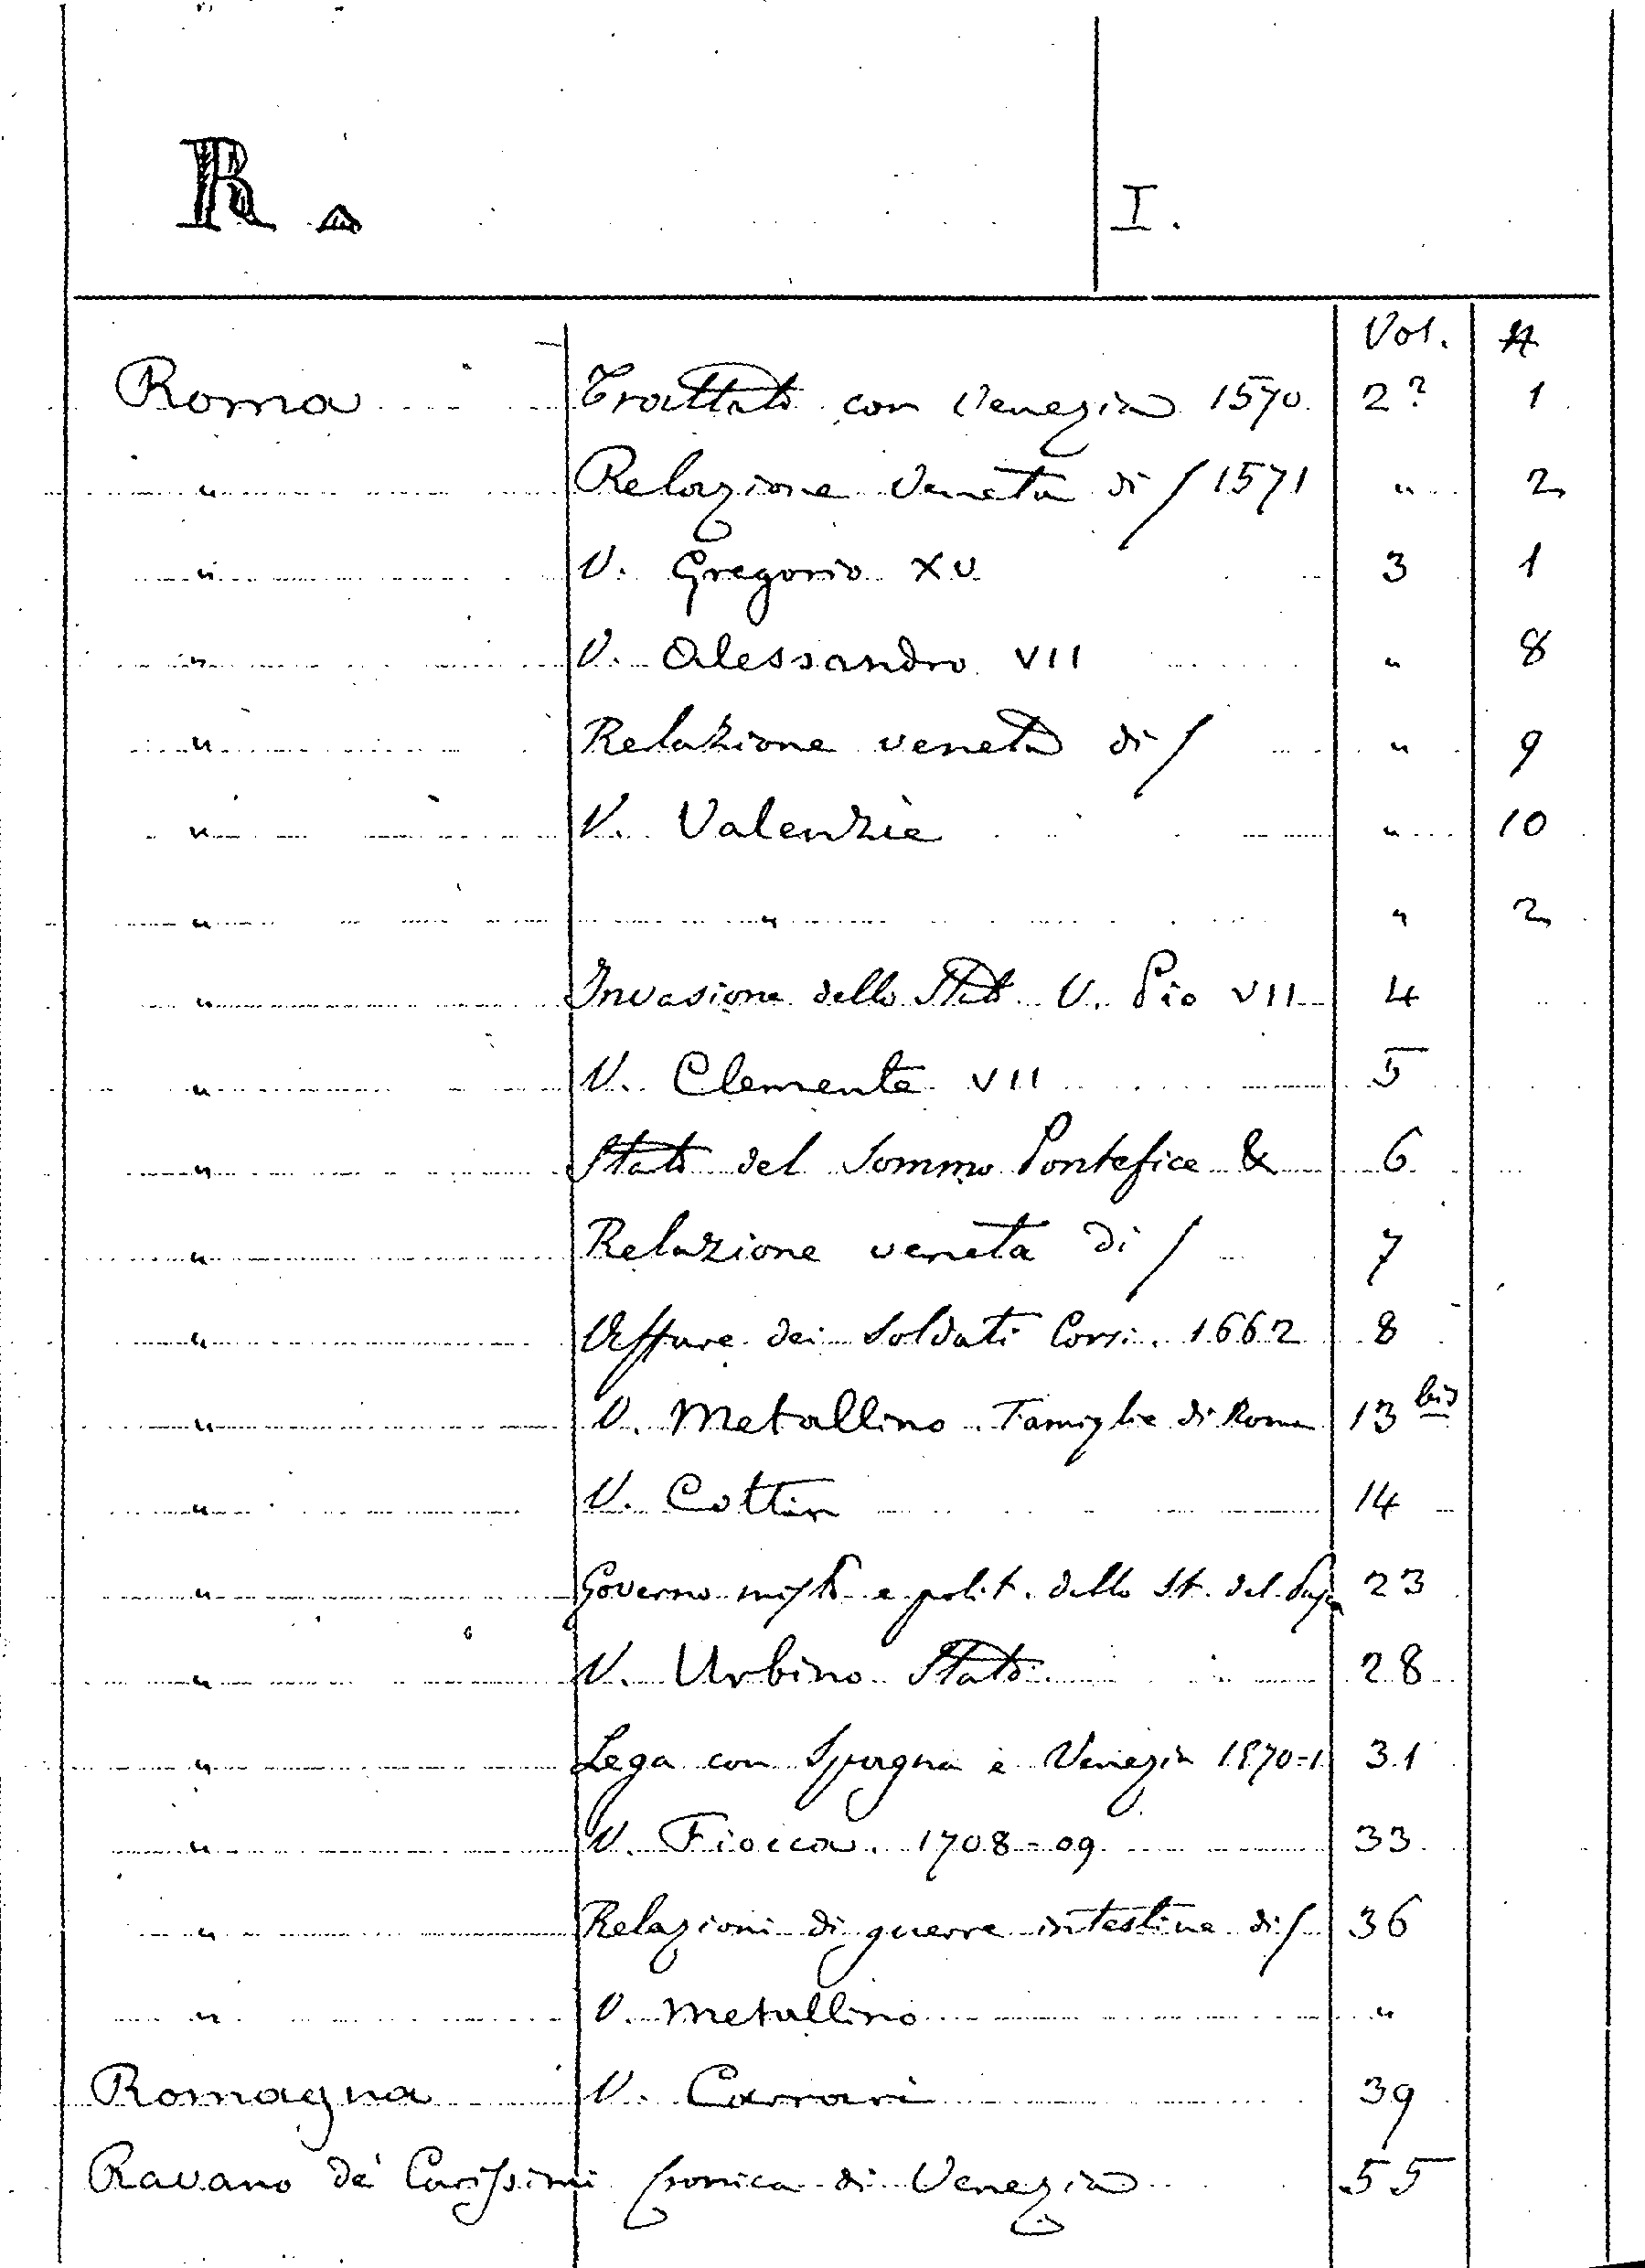 R. I.
Vol. A
Roma Trattato con Venezia 1570. 2? 1
" Relazione Veneta di / 1571 " 2
" V. Gregorio XV 3 1
" V. Alessandro VII " 8
" Relazione veneta di / " 9
" V. Valenziè " 10
" " " 2
" Invasione dello Stato V. Pio VII 4
" V. Clemente VII 5
" Stato del Sommo Pontefice & 6
" Relazione veneta di / 7
" Affare dei Soldati Corsi. 1662 8
" V. Metallino. Famiglie di Roma 13 bis
" V. Cottin 14
" Governo misto e polit. dello St. del Papa 23
" V. Urbino Stato 28
" Lega con Spagna e Venezia 1570-1 31
" V. Fiocca. 1708-09 33
" Relazioni di guerre intestine di / 36
" V. Metallino "
Romagna V. Carrari 39
Ravano de' Carissimi Cronica di Venezia 55